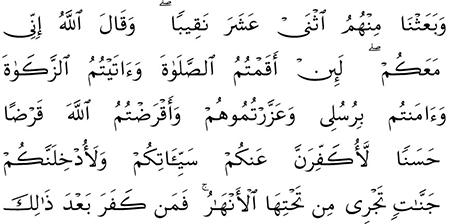 وَبَعَثْنَا مِنْهُمُ ٱثْنَىْ عَشَرَ نَقِيبًا ۖ وَقَالَ ٱللَّهُ إِنِّى
مَعَكُمْ ۖ لَئِنْ أَقَمْتُمُ ٱلصَّلَوٰةَ وَءَاتَيْتُمُ ٱلزَّكَوٰةَ
وَءَامَنتُم بِرُسُلِى وَعَزَّرْتُمُوهُمْ وَأَقْرَضْتُمُ ٱللَّهَ قَرْضًا
حَسَنًا لَّأُكَفِّرَنَّ عَنكُمْ سَيِّـَٔاتِكُمْ وَلَأُدْخِلَنَّكُمْ
جَنَّـٰتٍ تَجْرِى مِن تَحْتِهَا ٱلْأَنْهَـٰرُ ۚ فَمَن كَفَرَ بَعْدَ ذَٰلِكَ